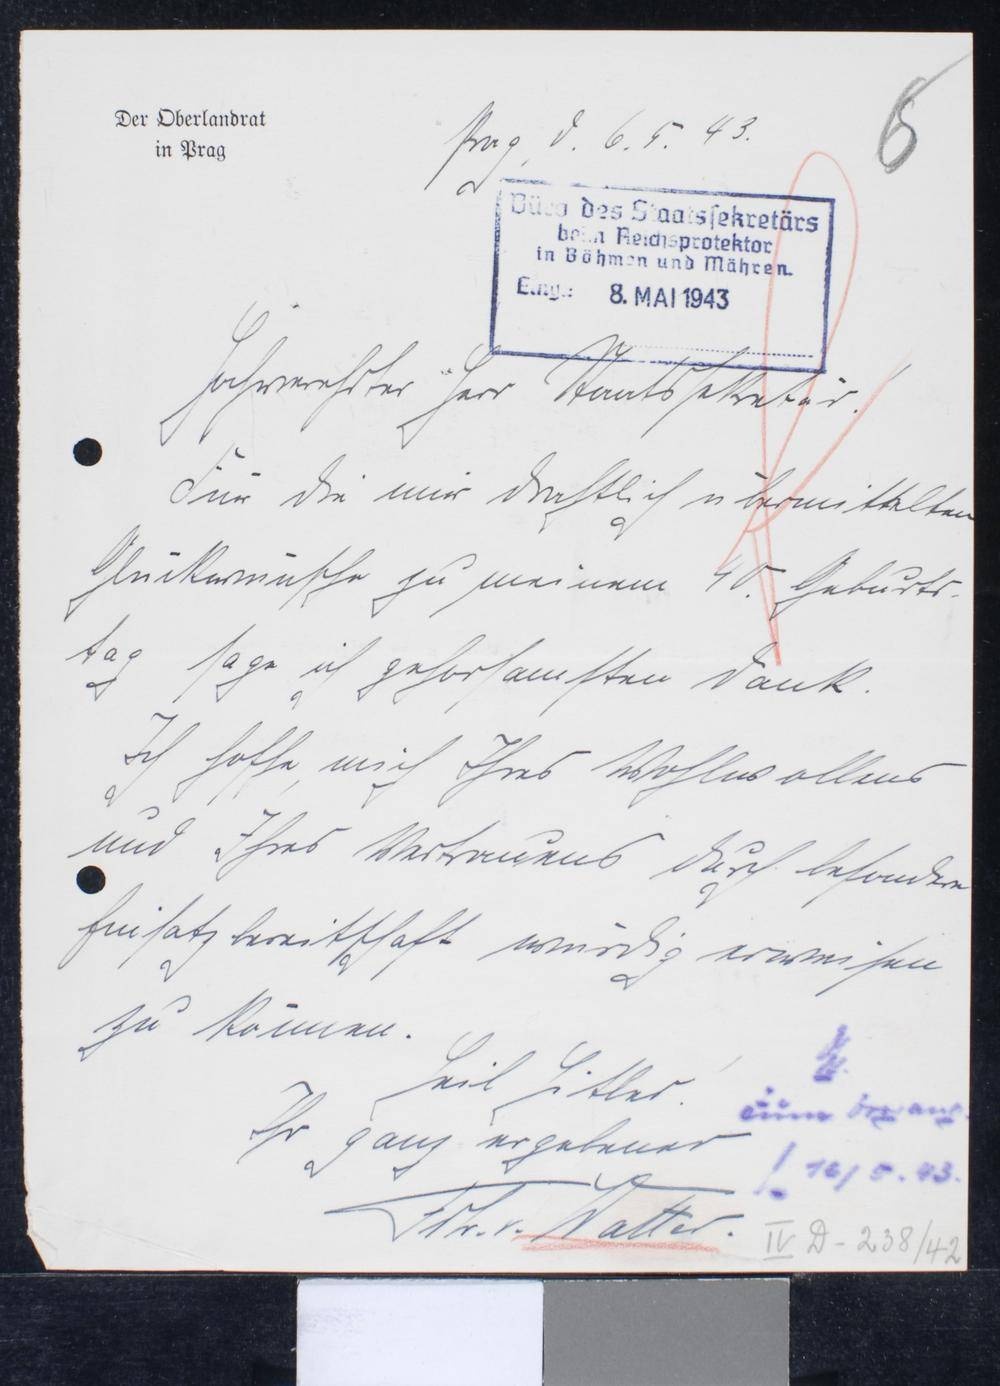 Der Oberlandrat
in Prag
Prag, d. 6. 5. 43.
Büro des Staatssekretärs
beim Reichsprotektor
in Böhmen und Mähren.
Eing.: 8. MAI 1943
Hochverehrter Herr Staatssekretär!
Für die mir drahtlich übermittelten
Glückwünsche zu meinem 40. Geburts-
tag sage ich gehorsamsten Dank.
Ich hoffe, mich Ihres Wohlwollens
und Ihres Vertrauens durch besondere
Einsatzbereitschaft würdig erweisen
zu können.
Heil Hitler!
Ihr ganz ergebener
Frhr. v. Watter.
zum
5. 43.
IV D - 238/42